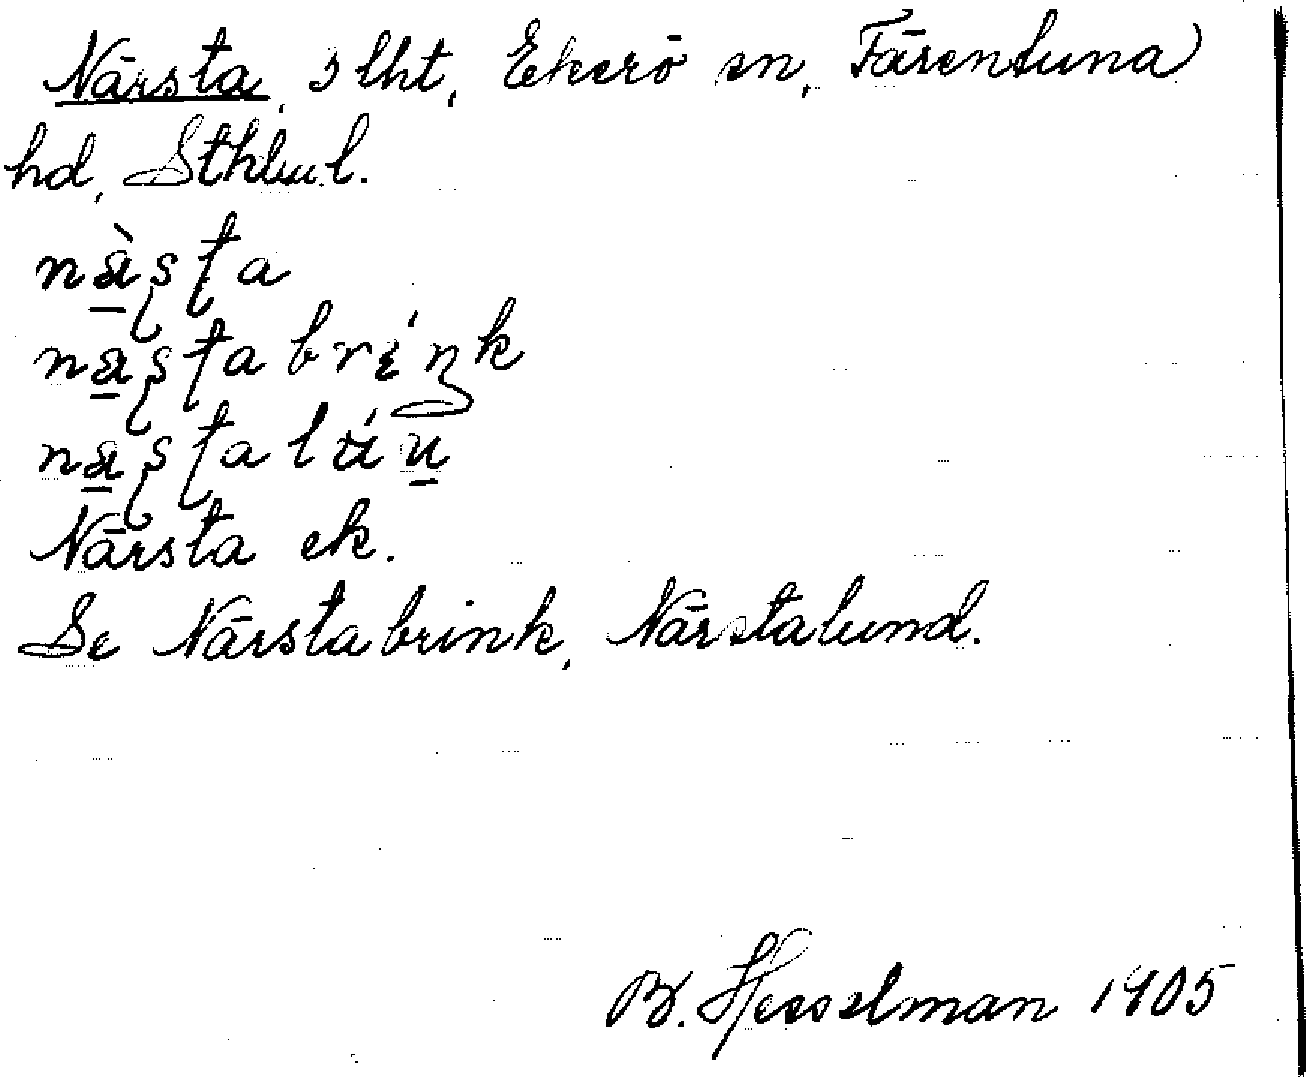 Närsta, 3 lht, Ekerö sn, Färentuna
hd, Sthlm l.
nä̀ʂʈa
näʂʈabríŋk
näʂʈal
Närsta ek.
Se Närstabrink, Närstalund.
B. Hesselman 1905